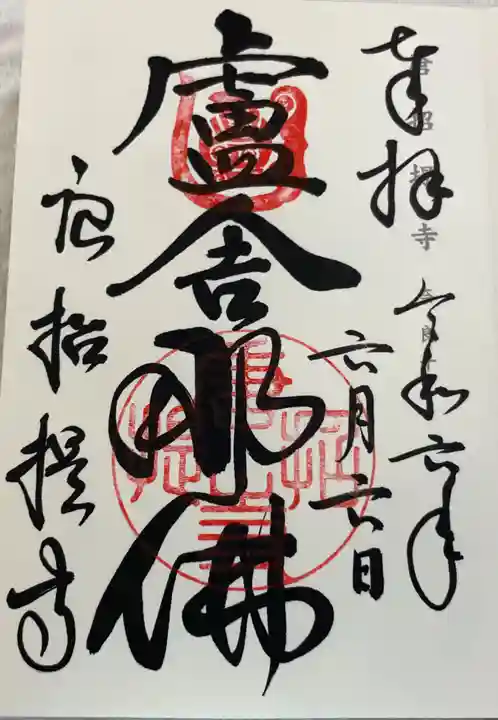 奉拝
令和六年
六月六日
盧舎那佛
唐招提寺
唐招提寺